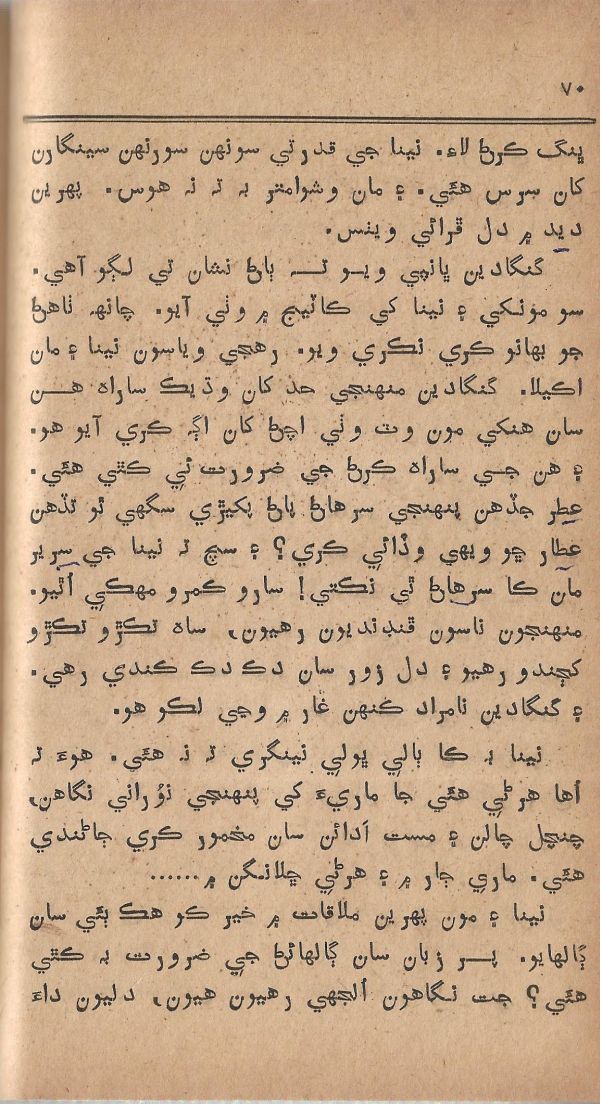 ٧٠
ڀنگ ڪرڻ لاءِ. نينا جي قدرتي سونهن سورنهن سينگارن
کان سرس هئي. ۽ مان وشوامتر بہ تہ نہ هوس. پهرين
ديد ۾ دل ڦرائي ويٺس.
گنگادين ڀانپي ويو تہ ٻاڻ نشان تي لڳو آهي.
سو مونکي ۽ نينا کي ڪاٽيج ۾ وٺي آيو. چانھ ٺاهڻ
جو بهانو ڪري نڪري ويو. رهجي وياسون نينا ۽ مان
اڪيلا. گنگادين منهنجي حد کان وڌيڪ ساراھ هن
سان هنکي مون وٽ وٺي اچڻ کان اڳ ڪري آيو هو.
۽ هن جي ساراھ ڪرڻ جي ضرورت ئي ڪٿي هئي.
عطر جڏهن پنهنجي سرهاڻ پاڻ پکيڙي سگهي ٿو تڏهن
عطار ڇو ويهي وڏائي ڪري؟ ۽ سچ تہ نينا جي سرير
مان ڪا سرهاڻ ٿي نڪتي! سارو ڪمرو مهڪي اُٿيو.
منهنجون ناسون ڦنڊنديون رهيون، ساھ تکڙو تکڙو
کڄندو رهيو ۽ دل زور سان دڪ دڪ ڪندي رهي.
۽ گنگادين نامراد ڪنهن غار ۾ وڃي لڪو هو.
نينا بہ ڪا ٻالي ڀولي نينگري تہ نہ هئي. هوءَ تہ
اُها هرڻي هئي جا ماريءَ کي پنهنجي نُوراني نگاهن،
چنچل چالن ۽ مست اَدائن سان مخمور ڪري ڄاڻندي
هئي. ماري ڄار ۾ ۽ هرڻي ڇلانگن ۾......
نينا ۽ مون پهرين ملاقات ۾ خير ڪو هڪ ٻئي سان
ڳالهايو. پر زبان سان ڳالهائڻ جي ضرورت بہ ڪٿي
هئي؟ جت نگاهون اُلجهي رهيون هيون، دليون داءَ